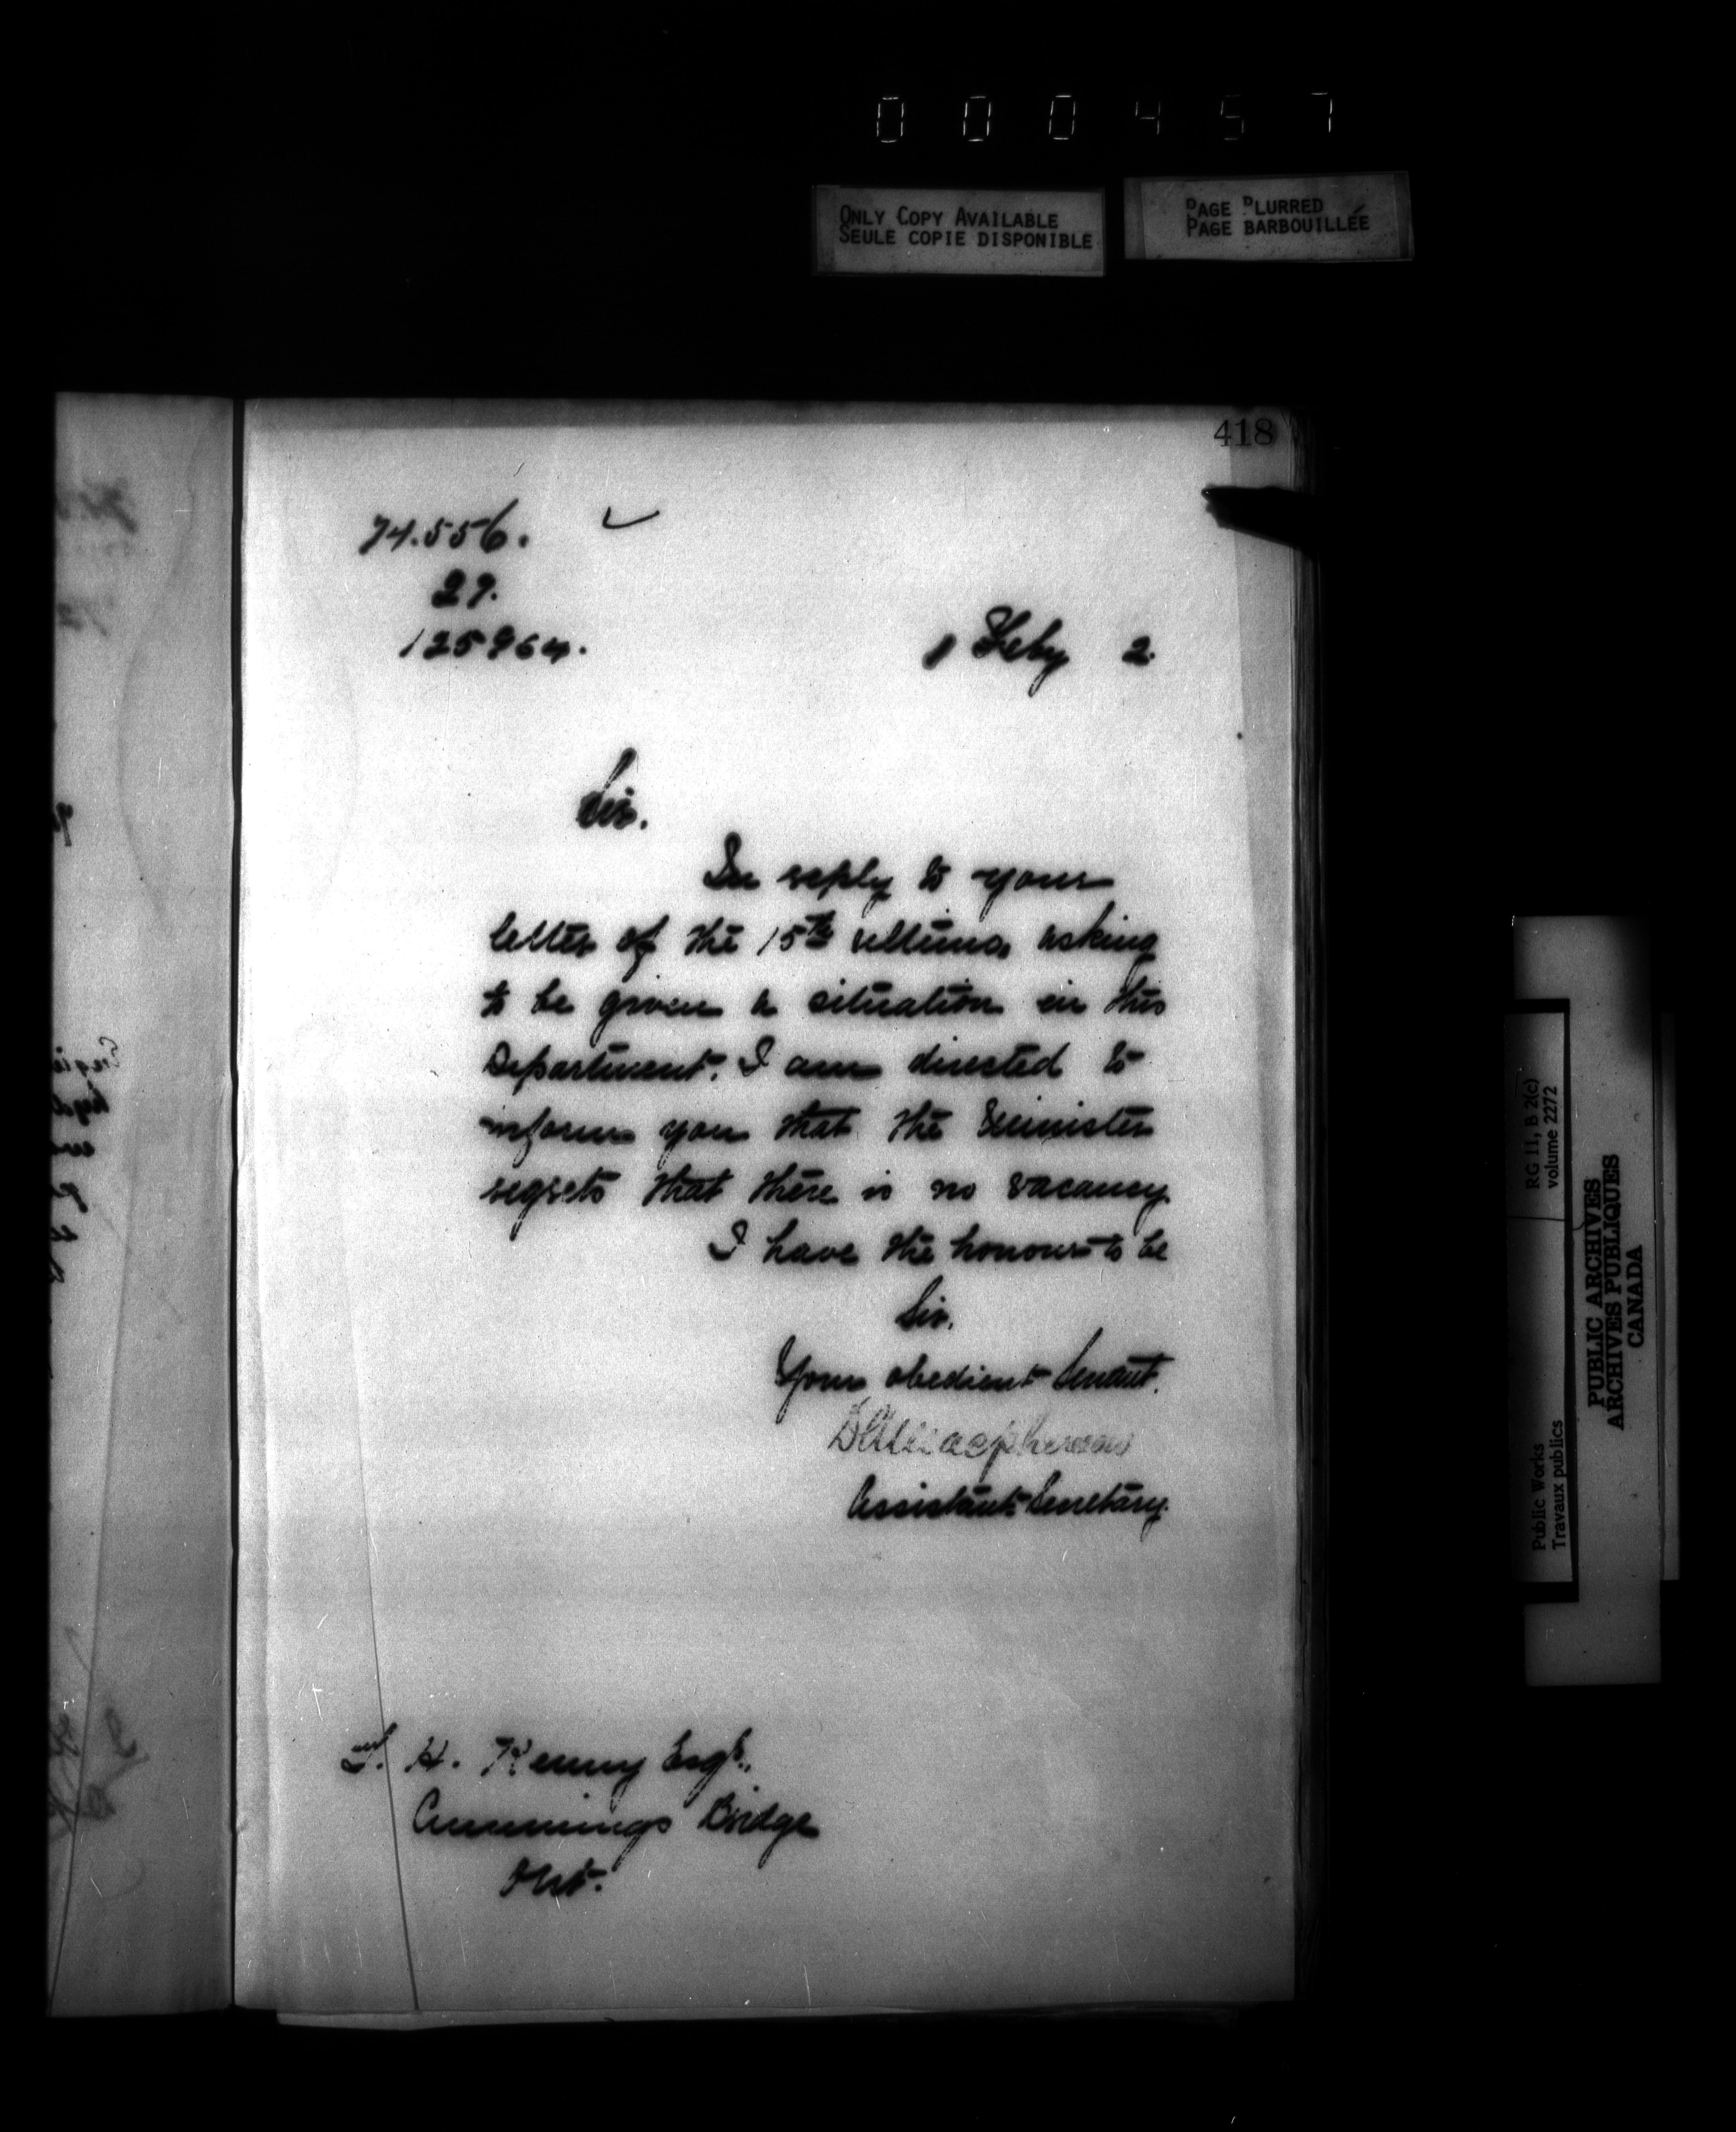 000457
ONLY COPY AVAILABLE
SEULE COPIE DISPONIBLE
PAGE BLURRED
PAGE BARBOUILLÉE
418
74.556.
27.
125964.
1 Feby 2.
Sir.
In reply to your
letter of the 15th ultimo, asking
to be given a situation in this
Department. I am directed to
inform you that the Minister
regrets that there is no vacancy.
I have the honour to be
Sir.
Your obedient Servant.
Macpherson
Assistant Secretary.
H. Kenny Esqr.,
Cummings Bridge
Ont.
RG 11, B 2(c)
volume 2272
Public Works
Travaux publics
PUBLIC ARCHIVES
ARCHIVES PUBLIQUES
CANADA